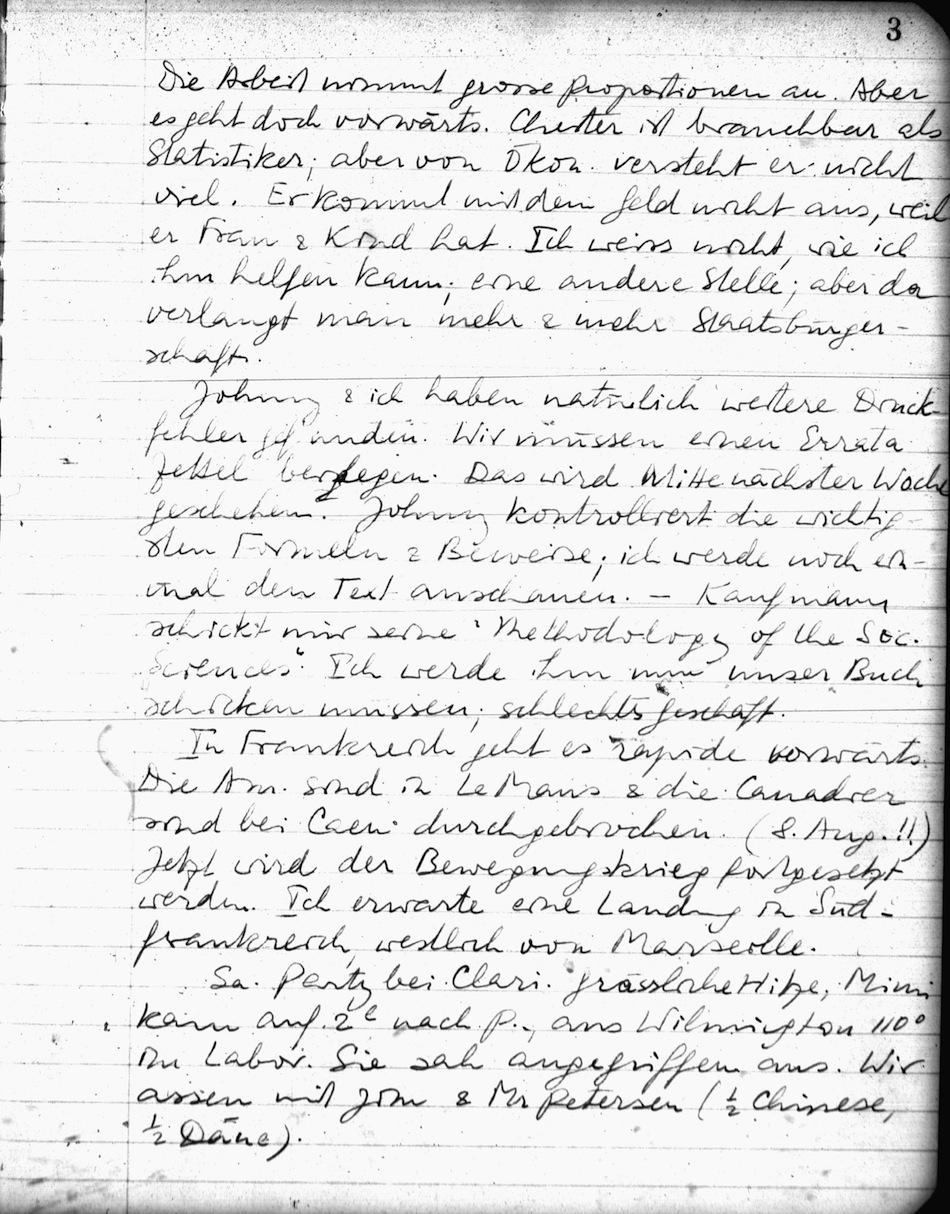 3
Die Arbeit nimmt grosse Proportionen an. Aber
es geht doch vorwärts. Chester ist brauchbar als
Statistiker; aber von Ökon. versteht er nicht
viel. Er kommt mit dem Geld nicht aus, weil
er Frau & Kind hat. Ich weiss nicht, wie ich
ihm helfen kann; eine andere Stelle; aber da
verlangt man mehr & mehr Staatsbürger-
schaft.
Johnny & ich haben natürlich weitere Druck-
fehler gefunden. Wir müssen einen Errata
Zettel beilegen. Das wird Mitte nächster Woche
geschehen. Johnny kontrolliert die wichtig-
sten Formeln & Beweise; ich werde noch ein-
mal den Text anschauen. – Kaufmann
schickt mir seine "Methodology of the Soc.
Sciences". Ich werde ihm nun unser Buch
schicken müssen; schlechtes Geschäft.
In Frankreich geht es rapide vorwärts.
Die Am. sind in Le Mans & die Canadier
sind bei Caen durchgebrochen. (8. Aug.!!)
Jetzt wird der Bewegungskrieg fortgesetzt
werden. Ich erwarte eine Landung in Süd-
frankreich, westlich von Marseille.
Sa. Party bei Clari. Grässliche Hitze, Mimi
kam auf 2ʰ nach P., aus Wilmington 110°
im Labor. Sie sah angegriffen aus. Wir
assen mit Jim & Mr Petersen (½ Chinese,
½ Däne).